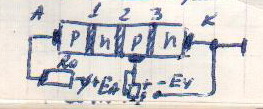 A 1 2 3 K
p n p n
Rн + EA - Ey